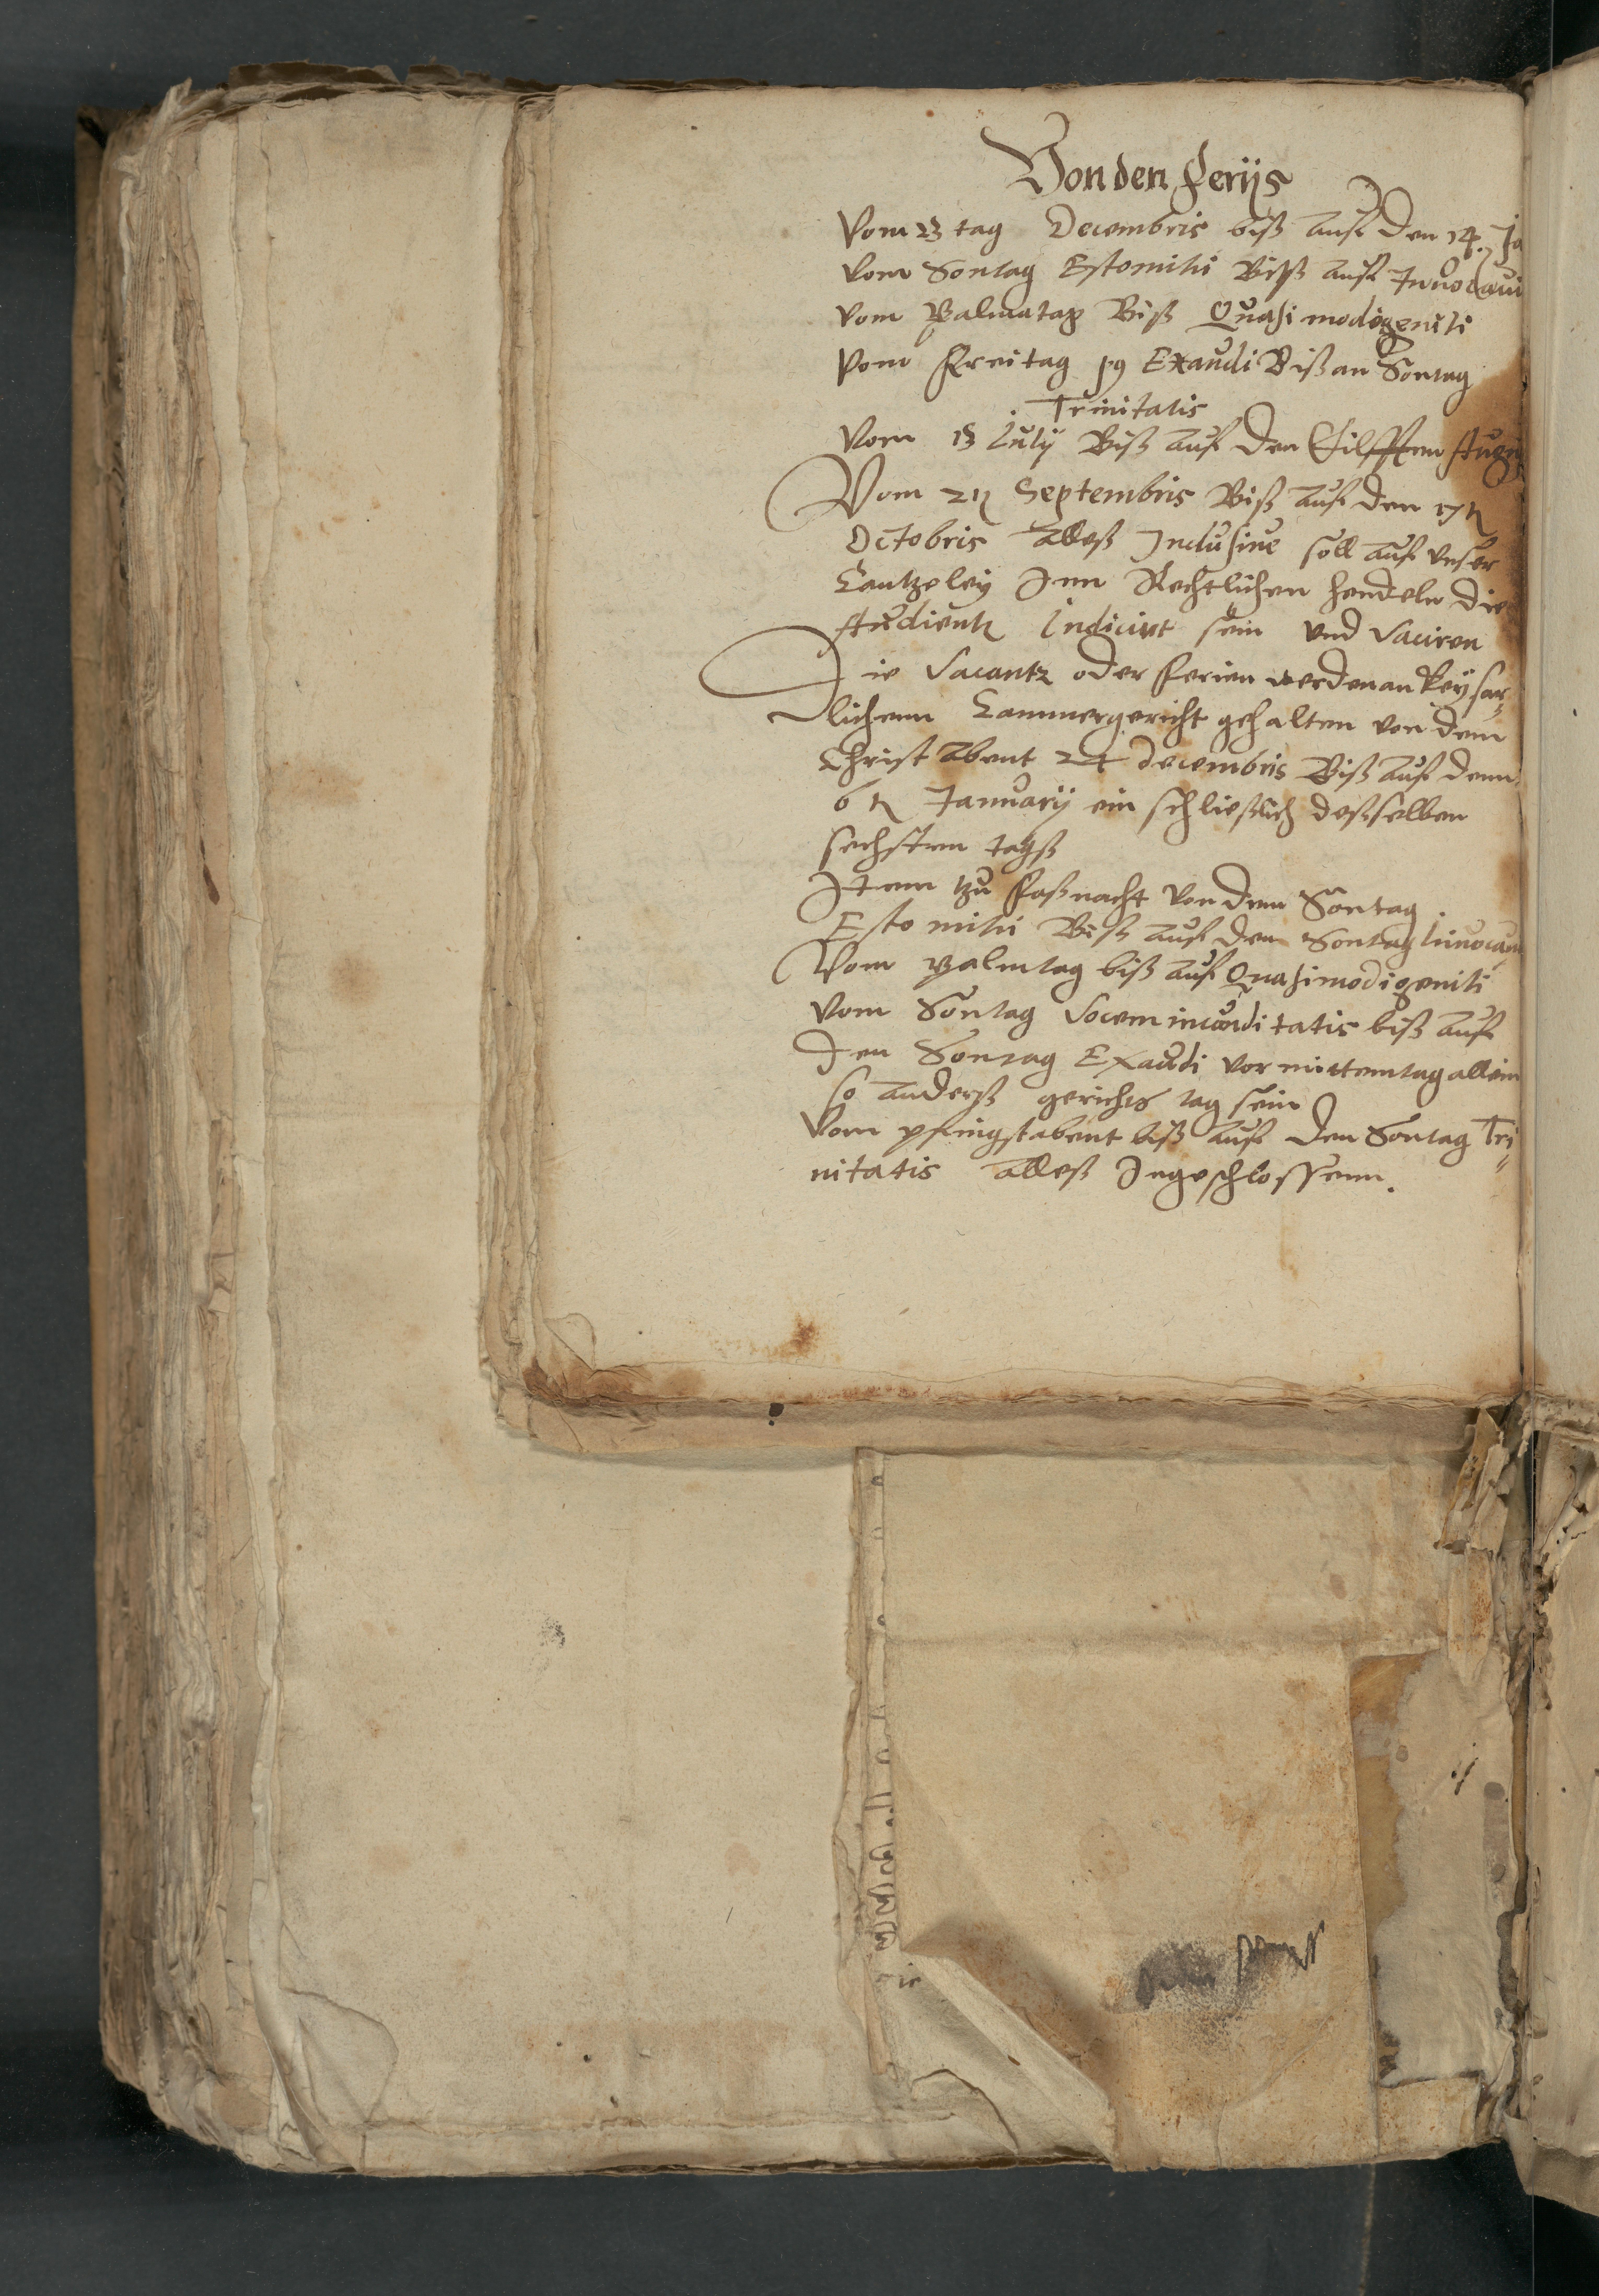 Von den ferijs
Vom 23 tag Decembris biß auf den 14. Ja
vom Sontag Estomihi Biß auf Invocavi
vom Palmatag Biß Quasimodigeniti
vom Freitag p9 Exaudi Biß an Sontag
Trinitatis
Vom 13 Julij Biß auf den Eilfften Augu
Vom 21 Septembris Biß auf den 17
Octobris alleß Inclusive soll auf vnser
Cantzeley Inn Rechtlichen hendeln die
Audientz Indicirt sein vnd vaciren
Die Vacantz oder ferien werden an keyser
lichenn Cammergericht gehalten von dem
Christ abent 24 decembris Biß auf denn
6 Januarij ein schließlich deßselben
sechsten tagß
Item tzu Faßnacht von dem Sontag
Esto mihi Biß auf den Sontag Invocavi
Vom Palmtag biß auf Quasimodigeniti
vom Sontag Vocem incunditatis biß auf
den Sontag Exaudi vor mittemtag allein
so anderß gerichts tag sein
Vom pfingstabent biß auf den Sontag Tri
nitatis alleß Ingeschlossenn.